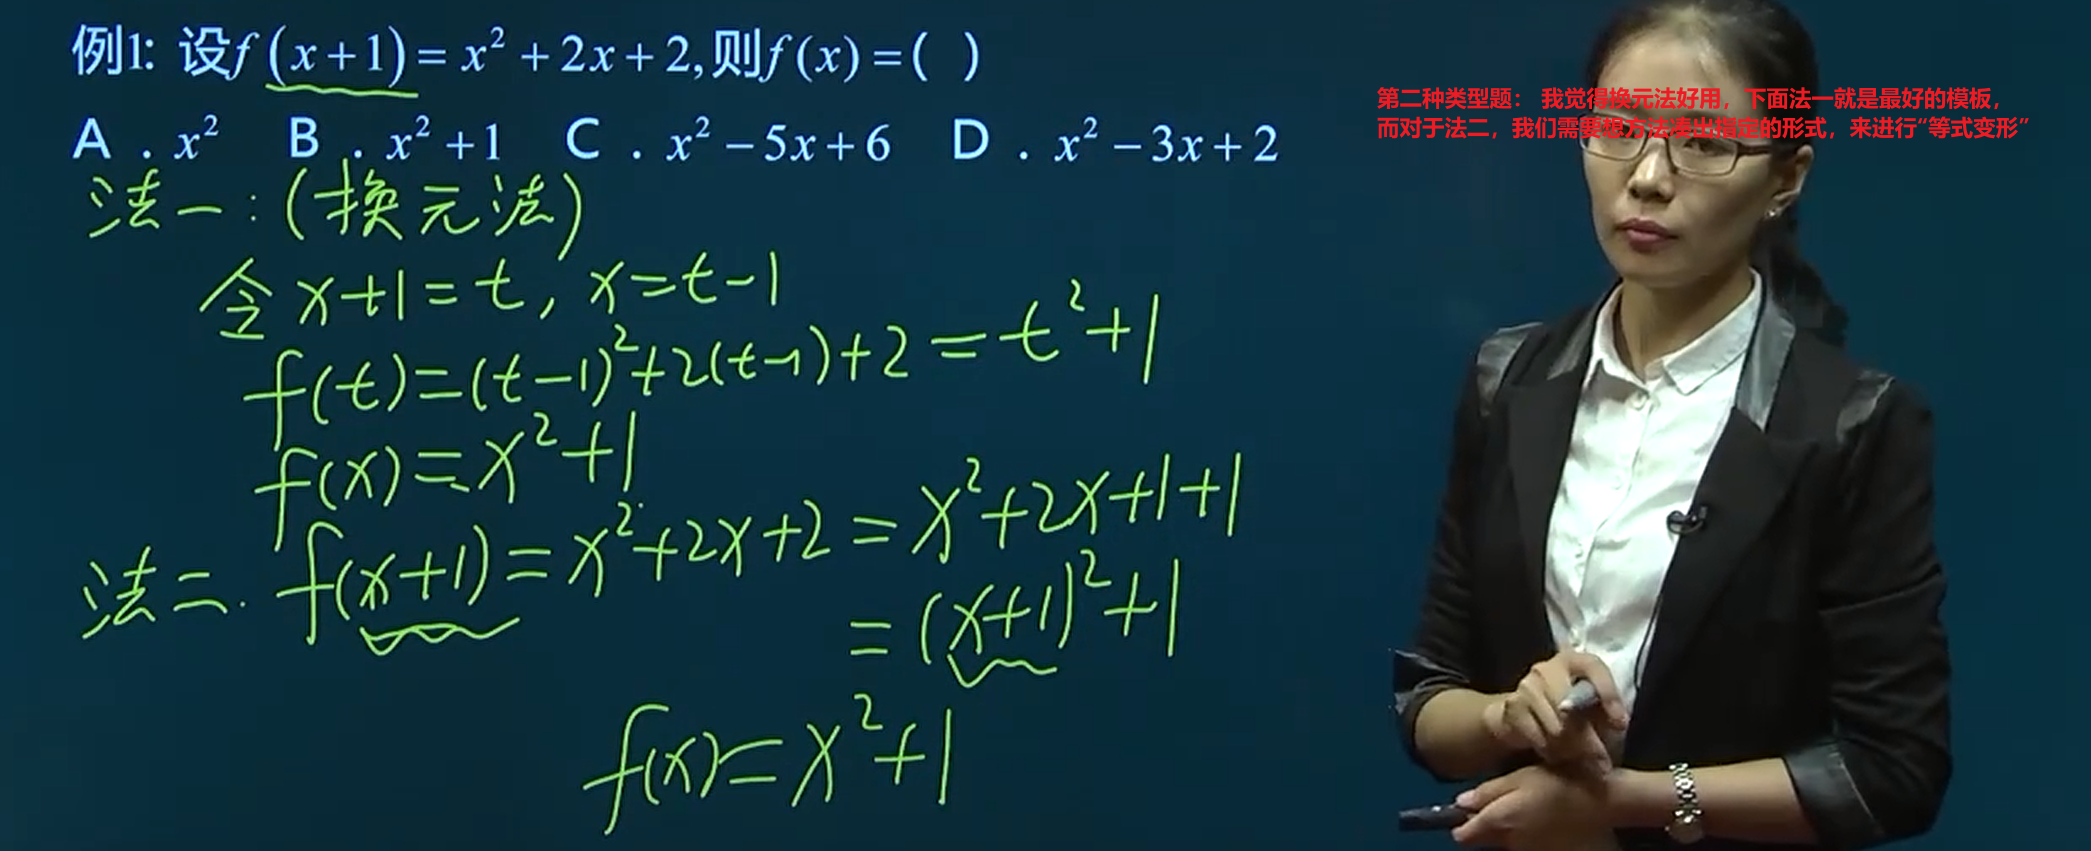 例1: 设f(x+1)=x²+2x+2,则f(x)=( )
A．x² B．x²+1 C．x²-5x+6 D．x²-3x+2
第二种类型题： 我觉得换元法好用，下面法一就是最好的模板，
而对于法二，我们需要想方法凑出指定的形式，来进行“等式变形”
法一:(换元法)
令x+1=t, x=t-1
f(t)=(t-1)²+2(t-1)+2=t²+1
f(x)=x²+1
法二. f(x+1)=x²+2x+2=x²+2x+1+1
=(x+1)²+1
f(x)=x²+1